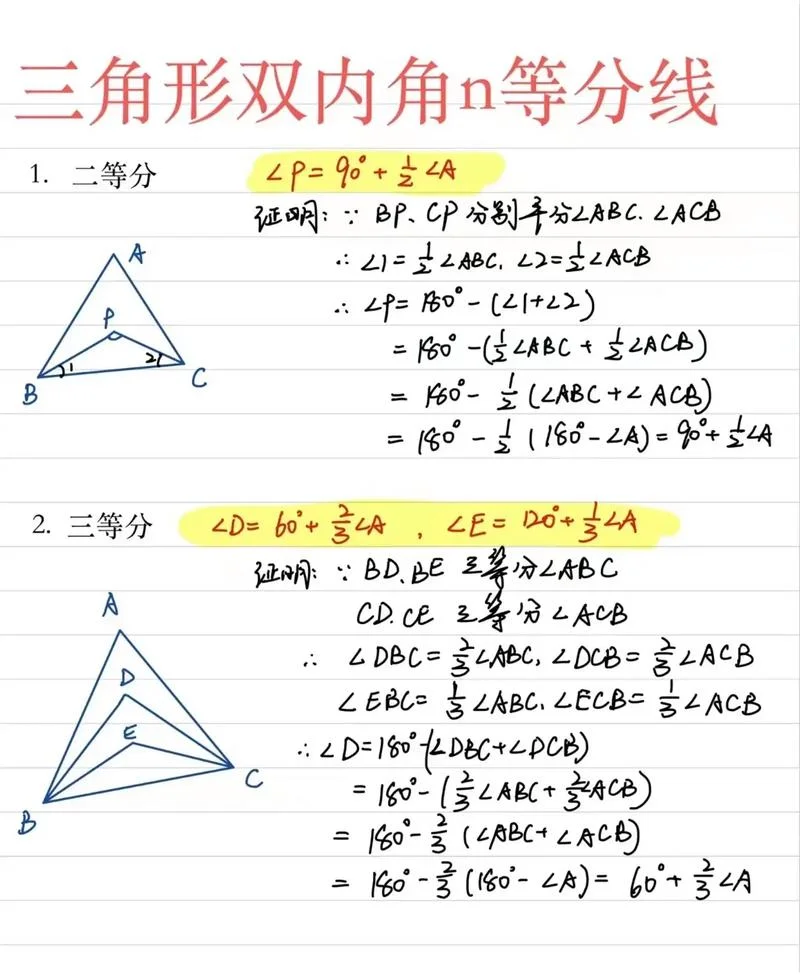 三角形双内角n等分线
1. 二等分 ∠P=90°+½∠A
证明：∵ BP、CP 分别平分∠ABC、∠ACB
∴ ∠1=½∠ABC, ∠2=½∠ACB
∴ ∠P=180°-(∠1+∠2)
=180°-(½∠ABC+½∠ACB)
=180°-½(∠ABC+∠ACB)
=180°-½(180°-∠A)=90°+½∠A
A
P
1 2
B C
2. 三等分 ∠D=60°+⅔∠A , ∠E=120°+⅓∠A
证明：∵ BD、BE 三等分∠ABC
CD、CE 三等分∠ACB
∴ ∠DBC=⅔∠ABC, ∠DCB=⅔∠ACB
∠EBC=⅓∠ABC, ∠ECB=⅓∠ACB
∴ ∠D=180°-(∠DBC+∠DCB)
=180°-(⅔∠ABC+⅔∠ACB)
=180°-⅔(∠ABC+∠ACB)
=180°-⅔(180°-∠A)=60°+⅔∠A
A
D
E
B C